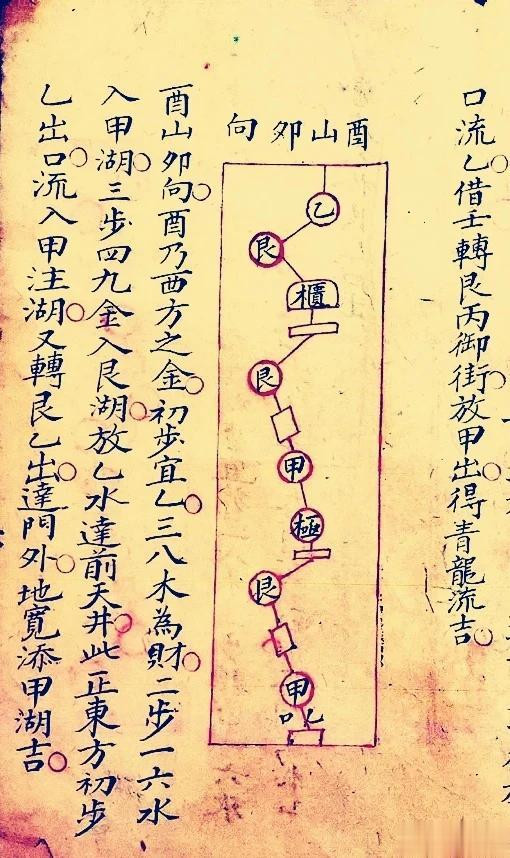 口流乙借壬轉艮丙御街放甲出得青龍流吉
向卯山酉
乙
艮
櫃
艮
甲
極
艮
甲
酉山卯向酉乃西方之金初步宜乙三八木為財二步一六水
入甲湖三步四九金入艮湖放乙水達前天井此正東方初步
乙出口流入甲注湖又轉艮乙出達門外地寬添甲湖吉